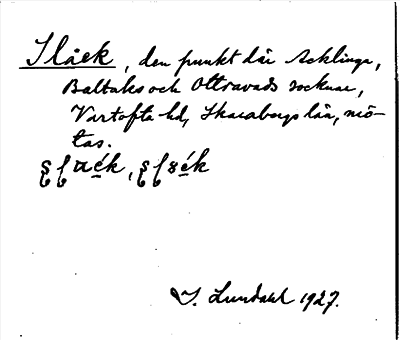 Släek, den punkt där Acklinga,
Baltaks och Ottravads socknar,
Vartofta hd, Skaraborgs län, mö-
tas.
J. Lundahl 1927.